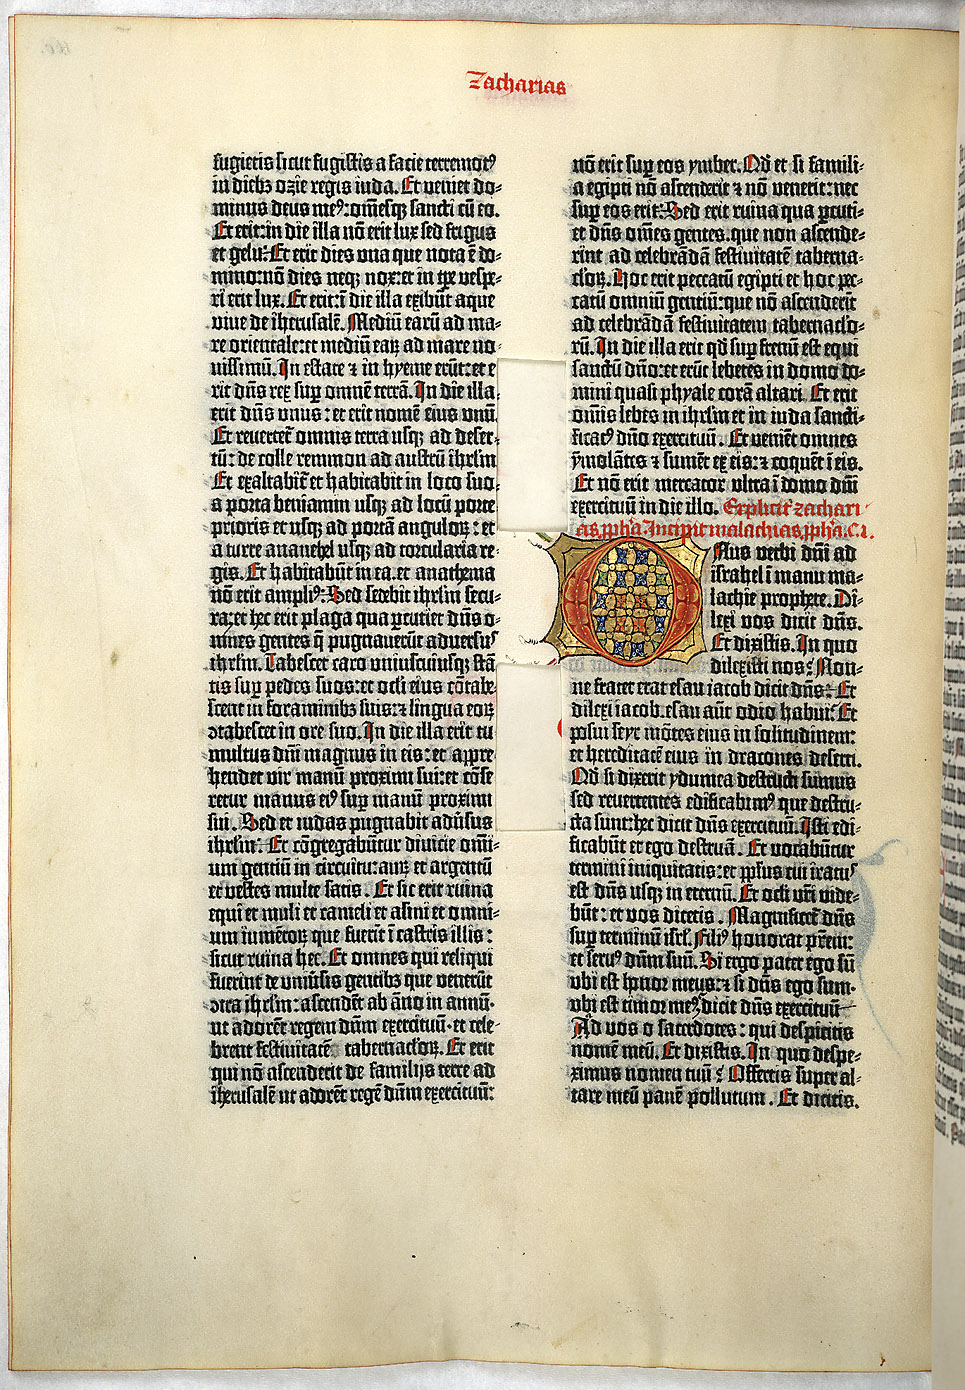 Zacharias
fugietis sicut fugistis a facie terremotꝰ
in diebꝫ ozie regis iuda. Et veniet do⸗
minus deus meꝰ: om̄esqꝫ sancti cū eo.
Et erit: in die illa nō erit lux sed frigus
et gelu: Et erit dies vna que nota ē do⸗
mino: nō dies neqꝫ nox: et in tp̄e vespe⸗
ri erit lux. Et erit: ī die illa exibūt aque
viue de iherusalē. Mediū earū ad ma⸗
re orientale: et mediū eaꝝ ad mare no⸗
uissimū. In estate ⁊ in hyeme erūt: et e
rit dn̄s rex suꝑ omnē terrā. In die illa
erit dn̄s vnus: et erit nomē eius vnū.
Et reuertet᷑ omnis terra usqꝫ ad deser⸗
tū: de colle remmon ad austrū ih̄rlm̄
Et exaltabit᷑ et habitabit in loco suo.
a porta beniamin usqꝫ ad locū porte
prioris et usqꝫ ad portā anguloꝝ: et
a turre ananehel usqꝫ ad torcularia re⸗
gis. Et habitabūt in ea. et anathema
nō erit ampliꝰ: Sed sedebit ih̄rlm̄ secu⸗
ra: et hec erit plaga qua ꝑcutiet dn̄s o⸗
mnes gentes q̄ pugnauerūt aduersus
ih̄rlm̄. Tabescet caro vniuscuiusqꝫ stā
tis suꝑ pedes suos: et oc̄li eius cōtabe⸗
scent in foraminibꝫ suis: ⁊ lingua eoꝝ
ↄtabescet in ore suo. In die illa erit tu
multus dn̄i magnus in eis: et appre
hendet vir manū proximi sui: et cōse
retur manus eiꝰ suꝑ manū proximi
sui. Sed et iudas pugnabit adūsus
ih̄rlm̄. Et cōgregabūtur diuicie omī⸗
um gentiū in circuitu: auꝝ et argentū
et vestes multe satis. Et sic erit ruina
equi et muli et cameli et asini et omni⸗
um iumētoꝝ que fuerīt ī castris illis:
sicut ruina hec. Et omnes qui reliqui
fuerint de vniūsis gentibꝫ que venerūt
ↄtra ih̄rlm̄: ascendēt ab āno in annū.
ut adorēt regem dn̄m exercituū. et cele⸗
brent festiuitatē tabernaclōꝝ. Et erit
qui nō ascenderit de familijs terre ad
iherusalē ut adorēt regē dn̄m exercituū:
nō erit suꝑ eos ymber. Qd̄ et si famili⸗
a egipti nō ascenderit ⁊ nō venerit: nec
suꝑ eos erit: Sed erit ruina qua ꝑcuti⸗
et dn̄s om̄es gentes. que non ascende⸗
rint ad celebrādā festiuitatē taberna⸗
clōꝝ. Hoc erit peccatū egipti et hoc pec⸗
catū omniū gentiū: que nō ascenderīt
ad celebrādā festiuitatem tabernaclo⸗
rū. In die illa erit qd̄ suꝑ frenū est equi
sanctū dn̄o: et erūt lebetes in domo do⸗
mini quasi phyale corā altari. Et erit
om̄is lebes in ih̄rlm̄ et in iuda sancti⸗
ficatꝰ dn̄o exercituū. Et veniēt omnes
ymolātes ⁊ sument ex eis: ⁊ coquēt ī eis.
Et nō erit mercator ultra ī domo dn̄i
exercituū in die illo. Explicit zachari
as ꝓph̄a. Incipit malachias ꝓph̄a. C. I.
Onus verbi dn̄i ad
israhel ī manu ma⸗
lachie prophete. Di⸗
lexi vos dicit dn̄s.
Et dixistis. In quo
dilexisti nos? Non⸗
ne frater erat esau iacob dicit dn̄s: Et
dilexi iacob. esau aūt odio habui: Et
posui seyr mōtes eius in solitudinem:
et hereditatē eius in dracones deserti.
Qd̄ si dixerit ydumea destructi sumus
sed reuertentes edificabimꝰ que destru⸗
cta sunt: hec dicit dn̄s exercituum. Isti edi⸗
ficabūt et ego destruā. Et vocabūtur
termini iniquitatis: et ppl̄us cui iratus
est dn̄s usqꝫ in eternū. Et oc̄li vr̄i vide⸗
būt: et vos dicetis. Magnificet᷑ dn̄s
suꝑ terminū isrl̄. Filiꝰ honorat pr̄em:
et seruꝰ dn̄m suū. Si ergo pater ego sū
vbi est honor meus: ⁊ si dn̄s ego sum.
vbi est timor meꝰ dicit dn̄s exercituū
Ad vos o sacerdotes: qui despicitis
nomē meū. Et dixistis. In quo despe⸗
ximus nomen tuū? Offertis super al⸗
tare meū panē pollutum. Et dicitis.